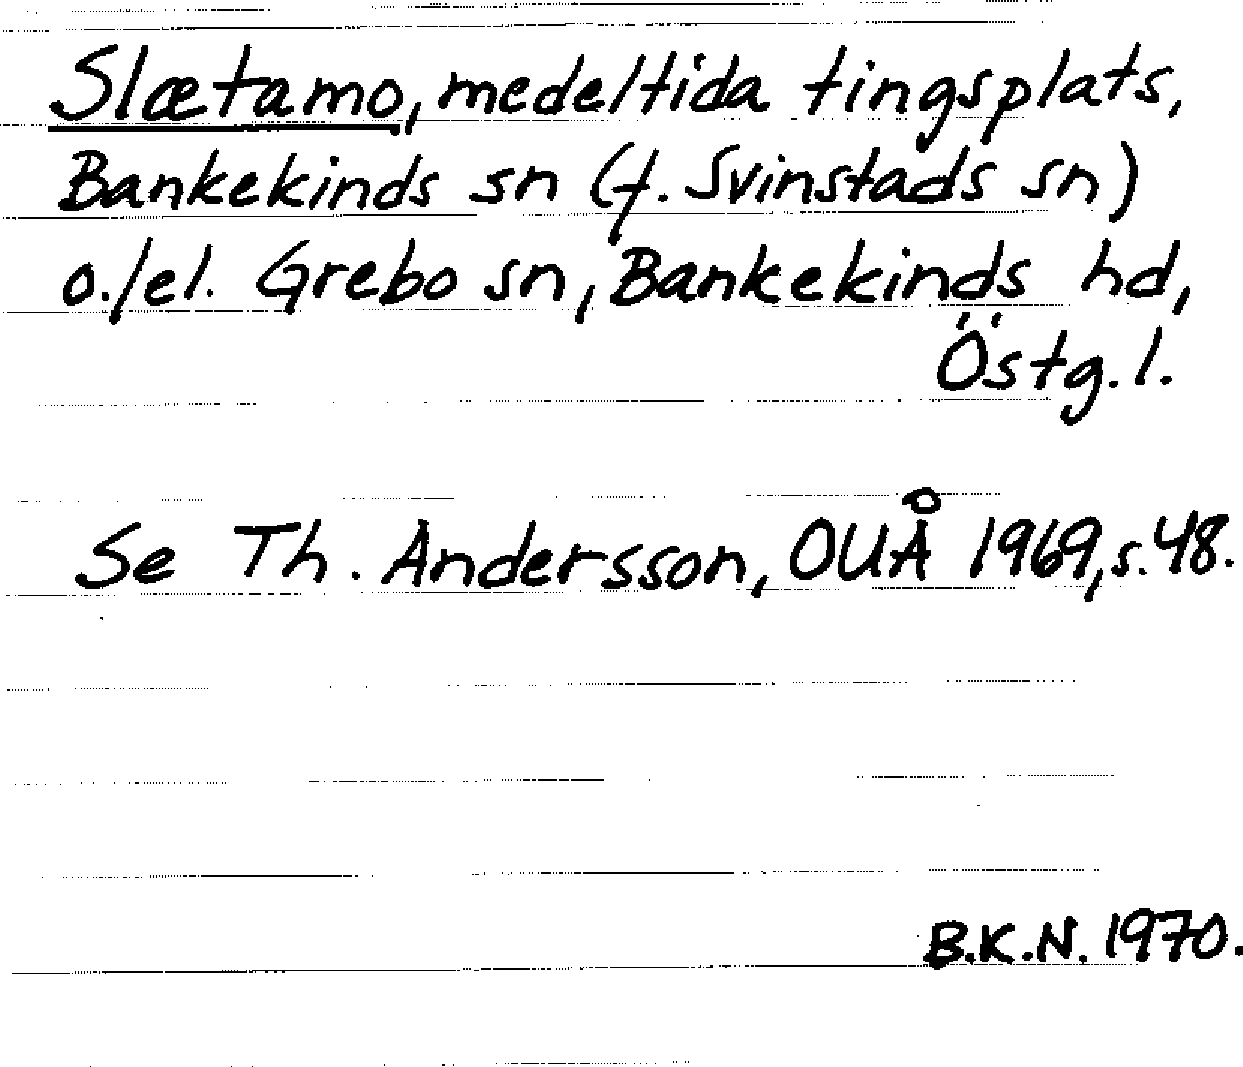 Slætamo, medeltida tingsplats,
Bankekinds sn (f. Svinstads sn)
o./el. Grebo sn, Bankekinds hd,
Östg. l.
Se Th. Andersson, OUÅ 1969, s. 48.
B.K.N. 1970.